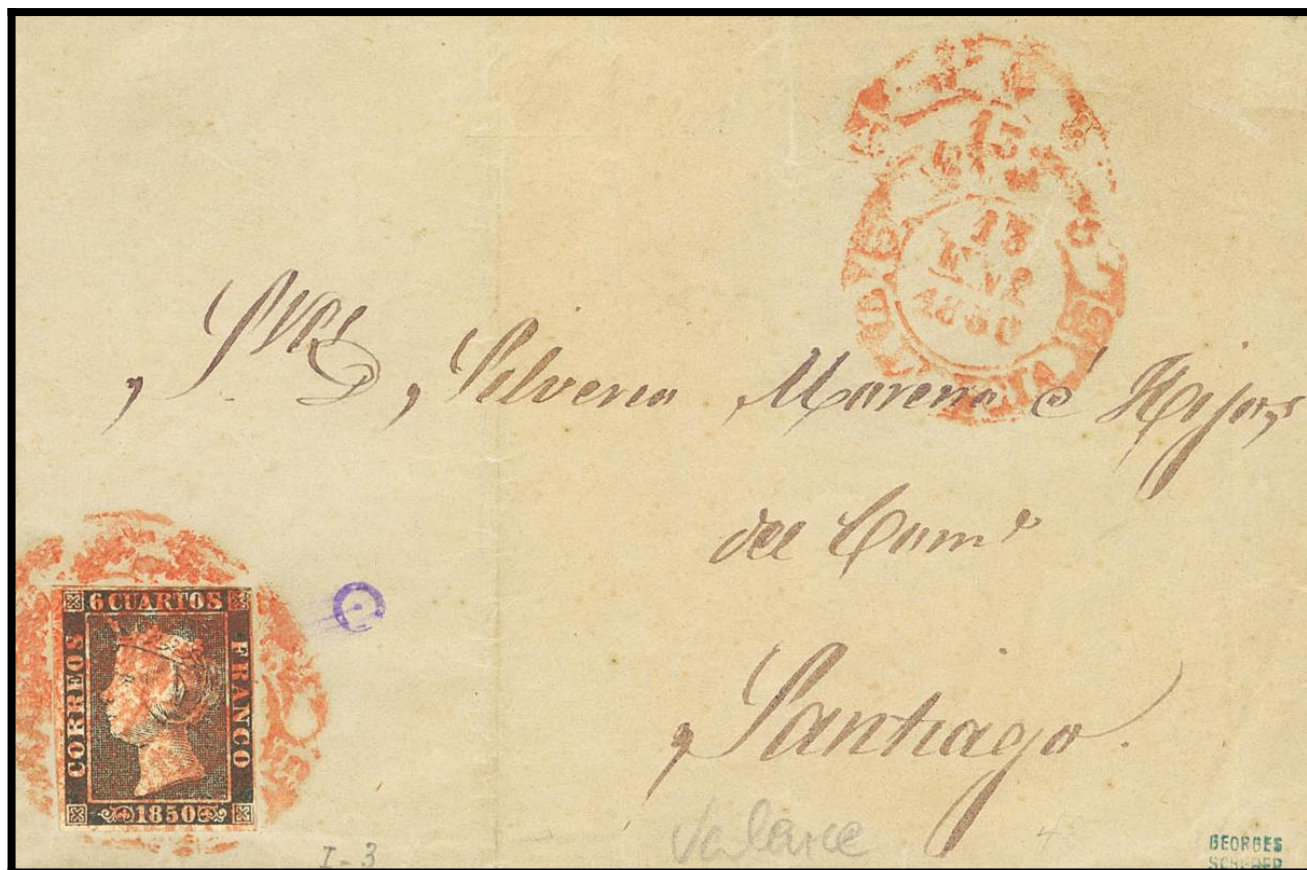 15
13
1850
, Sres D, Silverio Moreno é Hijos,
del Comº
, Santiago.
6 CUARTOS
CORREOS
FRANCO
1850
I-3
GEORGES
SCHERER